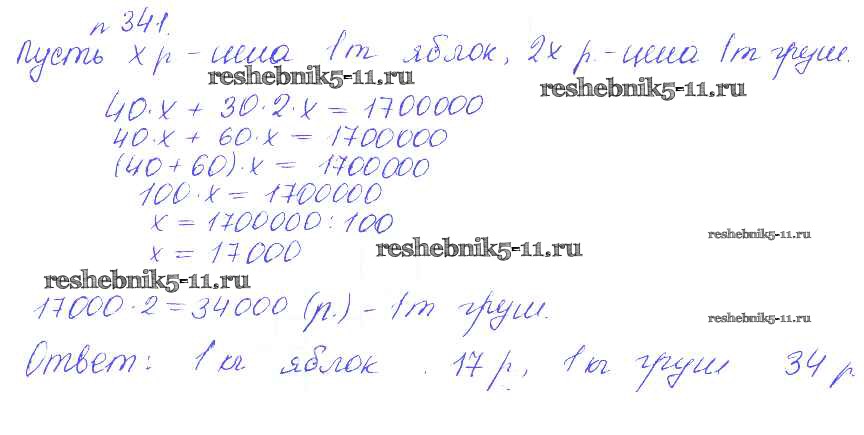 п 341.
Пусть х р - цена 1т яблок, 2х р. - цена 1т груш.
reshebnik5-11.ru reshebnik5-11.ru
40·х + 30·2·х = 1700000
40·х + 60·х = 1700000
(40+60)·х = 1700000
100·х = 1700000
х = 1700000 : 100
reshebnik5-11.ru
х = 17000
reshebnik5-11.ru
reshebnik5-11.ru
17000·2 = 34000 (р.) - 1т груш.
reshebnik5-11.ru
Ответ: 1кг яблок . 17 р, 1кг груш 34 р